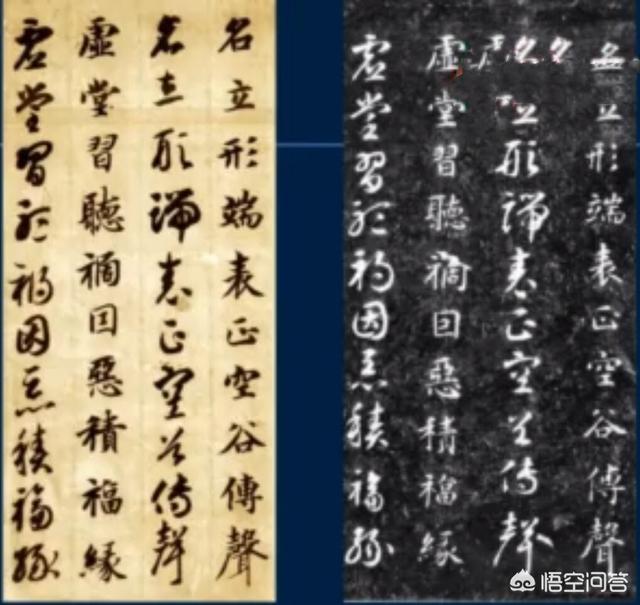 名立形端表正空谷傳聲
名立形端表正空谷傳聲
虛堂習聽禍囙惡積福緣
虛堂習聽禍因惡積福緣
名立形端表正空谷傳聲
名立形端表正空谷傳聲
虛堂習聽禍囙惡積福緣
虛堂習聽禍因惡積福緣
悟空问答